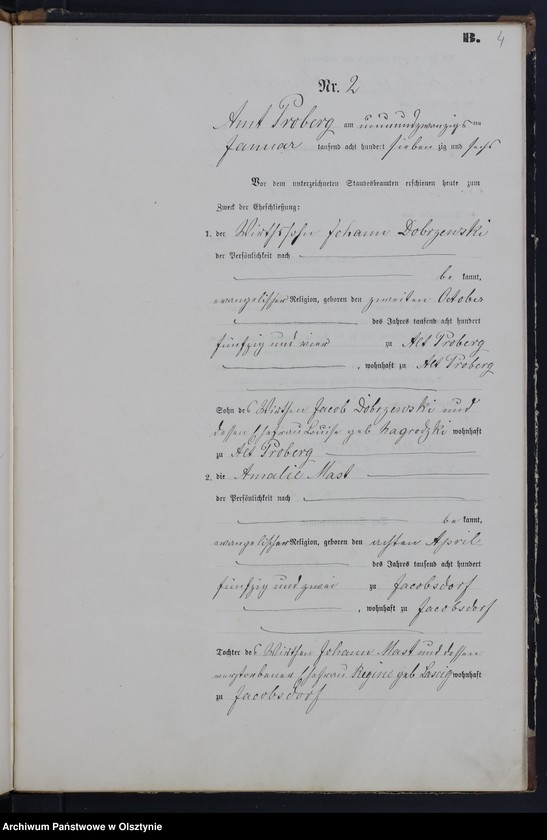 B. 4
Nr. 2
Amt Proberg am neunundzwanzigsten
Januar tausend acht hundert siebenzig und sechs
Vor dem unterzeichneten Standesbeamten erschienen heute zum
Zweck der Eheschließung:
1. der Wirthssohn Johann Dobrzewski
der Persönlichkeit nach
be kannt,
evangelischer Religion, geboren den zweiten October
des Jahres tausend acht hundert
fünfzig und vier zu Alt Proberg
, wohnhaft zu Alt Proberg
Sohn des Wirthen Jacob Dobrzewski und
dessen Ehefrau Louise geb Nagrodzki wohnhaft
zu Alt Proberg
2. die Amalie Mast
der Persönlichkeit nach
be kannt,
evangelischer Religion, geboren den achten April
des Jahres tausend acht hundert
fünfzig und zwei zu Jacobsdorf
, wohnhaft zu Jacobsdorf
Tochter des Wirthen Johann Mast und dessen
verstorbener Ehefrau Regine geb. wohnhaft
zu Jacobsdorf
Archiwum Państwowe w Olsztynie